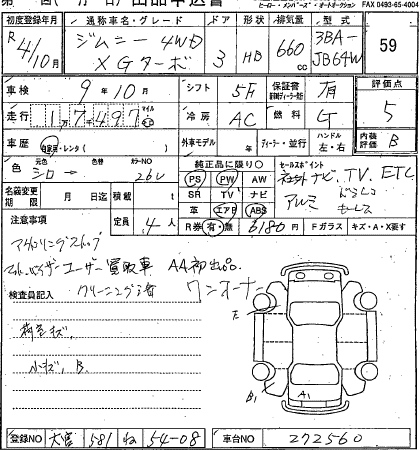 FAX 0493-65-4004
初度登録年月 通称車名・グレード ドア 形状 排気量 型式
R4/10月 ジムニー 4WD XGターボ 3 HB 660cc 3BA-JB64W 59
車検 9年10月 シフト 5F 保証書 有 評価点
走行 17,497 冷房 AC 燃料 G 5
車歴 自家用・レンタ 外車モデル 年 ディーラー・並行 ハンドル 左・右 内装評価 B
色 元色 シロ → 色替 カラーNO 26U
純正品に限り○
PS PW AW
SR TV ナビ
革 エアB ABS
セールスポイント
社外ナビ、TV、ETC
アルミ ドラレコ
名義変更期限 月 日迄 積載 t
定員 4人 R券 有・無 6180円 Fガラス キズ・A・X要す
注意事項
アイドリングストップ
ユーザー買取車 AA初出品
検査員記入 クリーニング済 ワンオーナー
小キズ、B
E
B1
A1
登録NO 大宮 581 ね 54-08 車台NO 272560